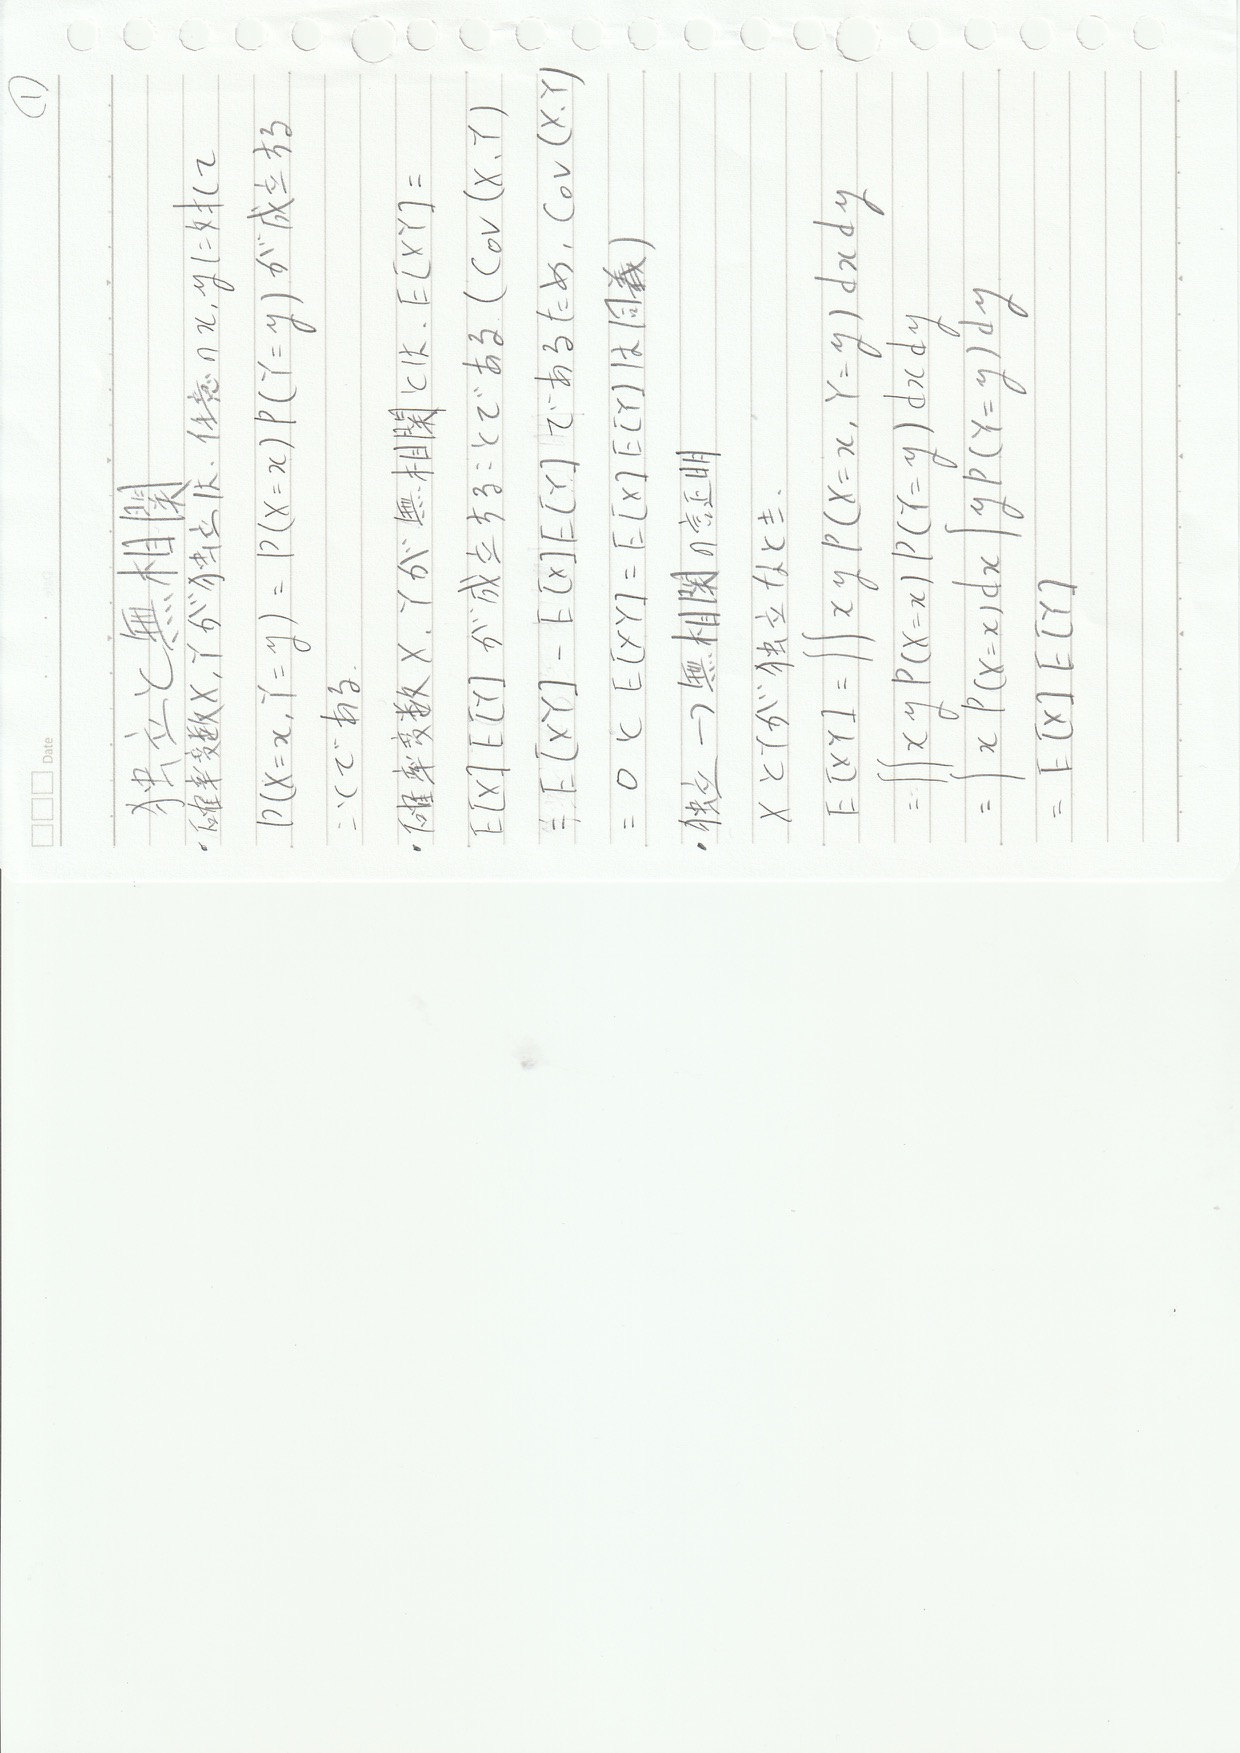 ①
Date
独立と無相関
・確率変数X, Yが独立は、任意のx, yに対して
P(X=x, Y=y) = P(X=x)P(Y=y)が成立する
ことである.
・確率変数X, Yが無相関とは、E[XY]=
E[X]E[Y]が成立することである(Cov(X,Y)
= E[XY] - E[X]E[Y]であるため、Cov(X,Y)
= 0とE[XY]=E[X]E[Y]は同義)
・独立→無相関の証明
XとYが独立なとき、
E[XY] = ∬xyP(X=x, Y=y)dxdy
= ∬xyP(X=x)P(Y=y)dxdy
= ∫xP(X=x)dx∫yP(Y=y)dy
= E[X]E[Y]